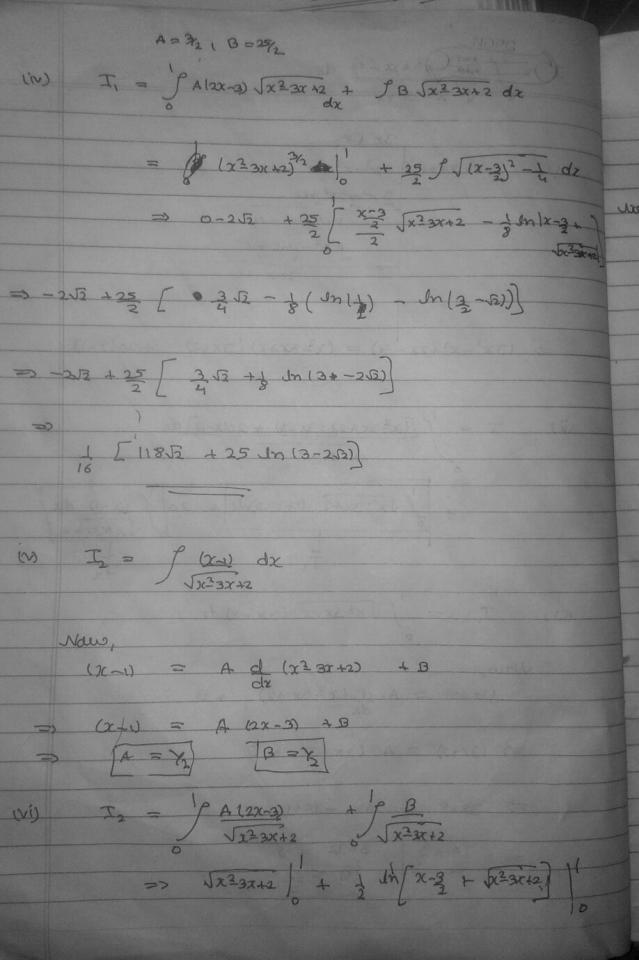 A = 3/2, B = 25/2
(iv) I₁ = ∫₀¹ A(2x-3) √(x²-3x+2) dx + ∫ B √(x²-3x+2) dx
= (x²-3x+2)^(3/2) |₀¹ + 25/2 ∫ √((x-3/2)² - 1/4) dx
⇒ 0-2√2 + 25/2 [ (x-3/2)/2 √(x²-3x+2) - 1/8 ln|x-3/2 + √(x²-3x+2)| ]₀¹
⇒ -2√2 + 25/2 [ 3/4 √2 - 1/8 ( ln(1/2) - ln(3/2 - √2) ) ]
⇒ -2√2 + 25/2 [ 3/4 √2 + 1/8 ln(3 - 2√2) ]
⇒
1/16 [ 118√2 + 25 ln(3-2√2) ]
(v) I₂ = ∫ (x-1)/√(x²-3x+2) dx
Now,
(x-1) = A d/dx (x²-3x+2) + B
⇒ (x-1) = A (2x-3) + B
⇒ A = 1/2 B = 1/2
(vi) I₂ = ∫₀¹ A(2x-3)/√(x²-3x+2) + ∫₀¹ B/√(x²-3x+2)
⇒ √(x²-3x+2) |₀¹ + 1/2 ln[ x-3/2 + √(x²-3x+2) ] |₀¹